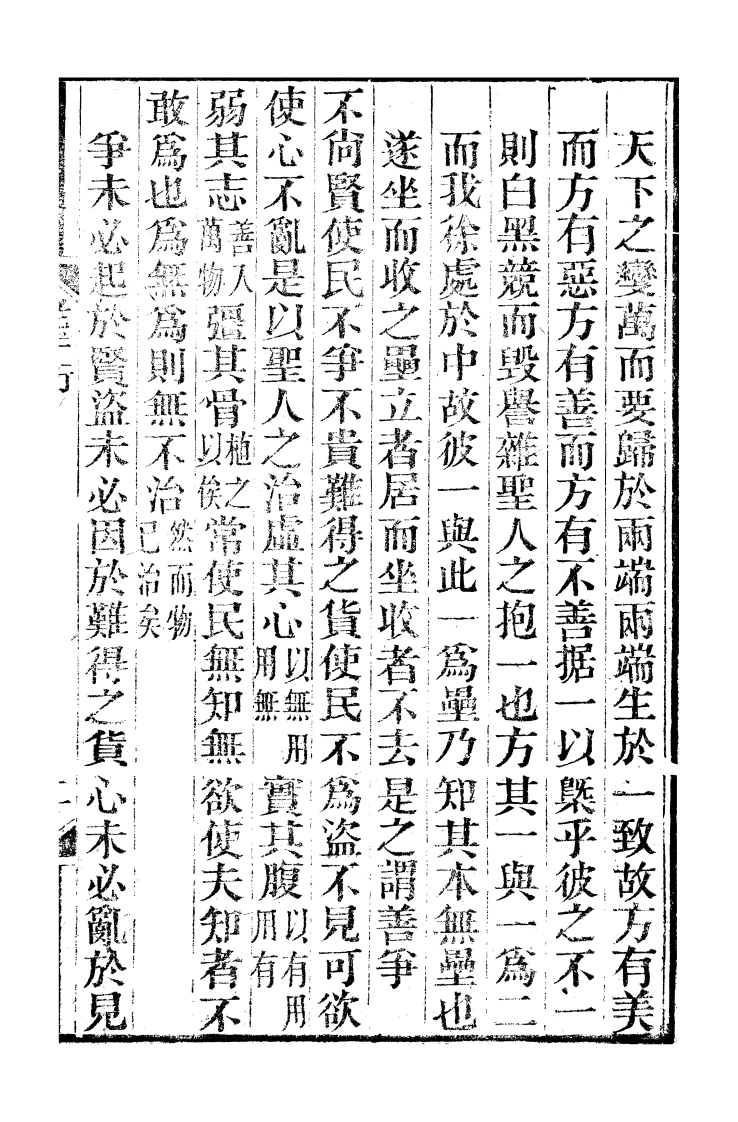 天下之變萬而要歸於兩端兩端生於一致故方有美
而方有惡方有善而方有不善据一以槩乎彼之不一
則白黑競而毀譽雜聖人之抱一也方其一與一爲二
而我徐處於中故彼一與此一爲壘乃知其本無壘也
遂坐而收之壘立者居而坐收者不去是之謂善爭
不尙賢使民不爭不貴難得之貨使民不爲盜不見可欲
使心不亂是以聖人之治虛其心以無用用無實其腹以有用用有
弱其志善人萬物彊其骨植之以俟常使民無知無欲使夫知者不
敢爲也爲無爲則無不治然而物已治矣
爭未必起於賢盜未必因於難得之貨心未必亂於見